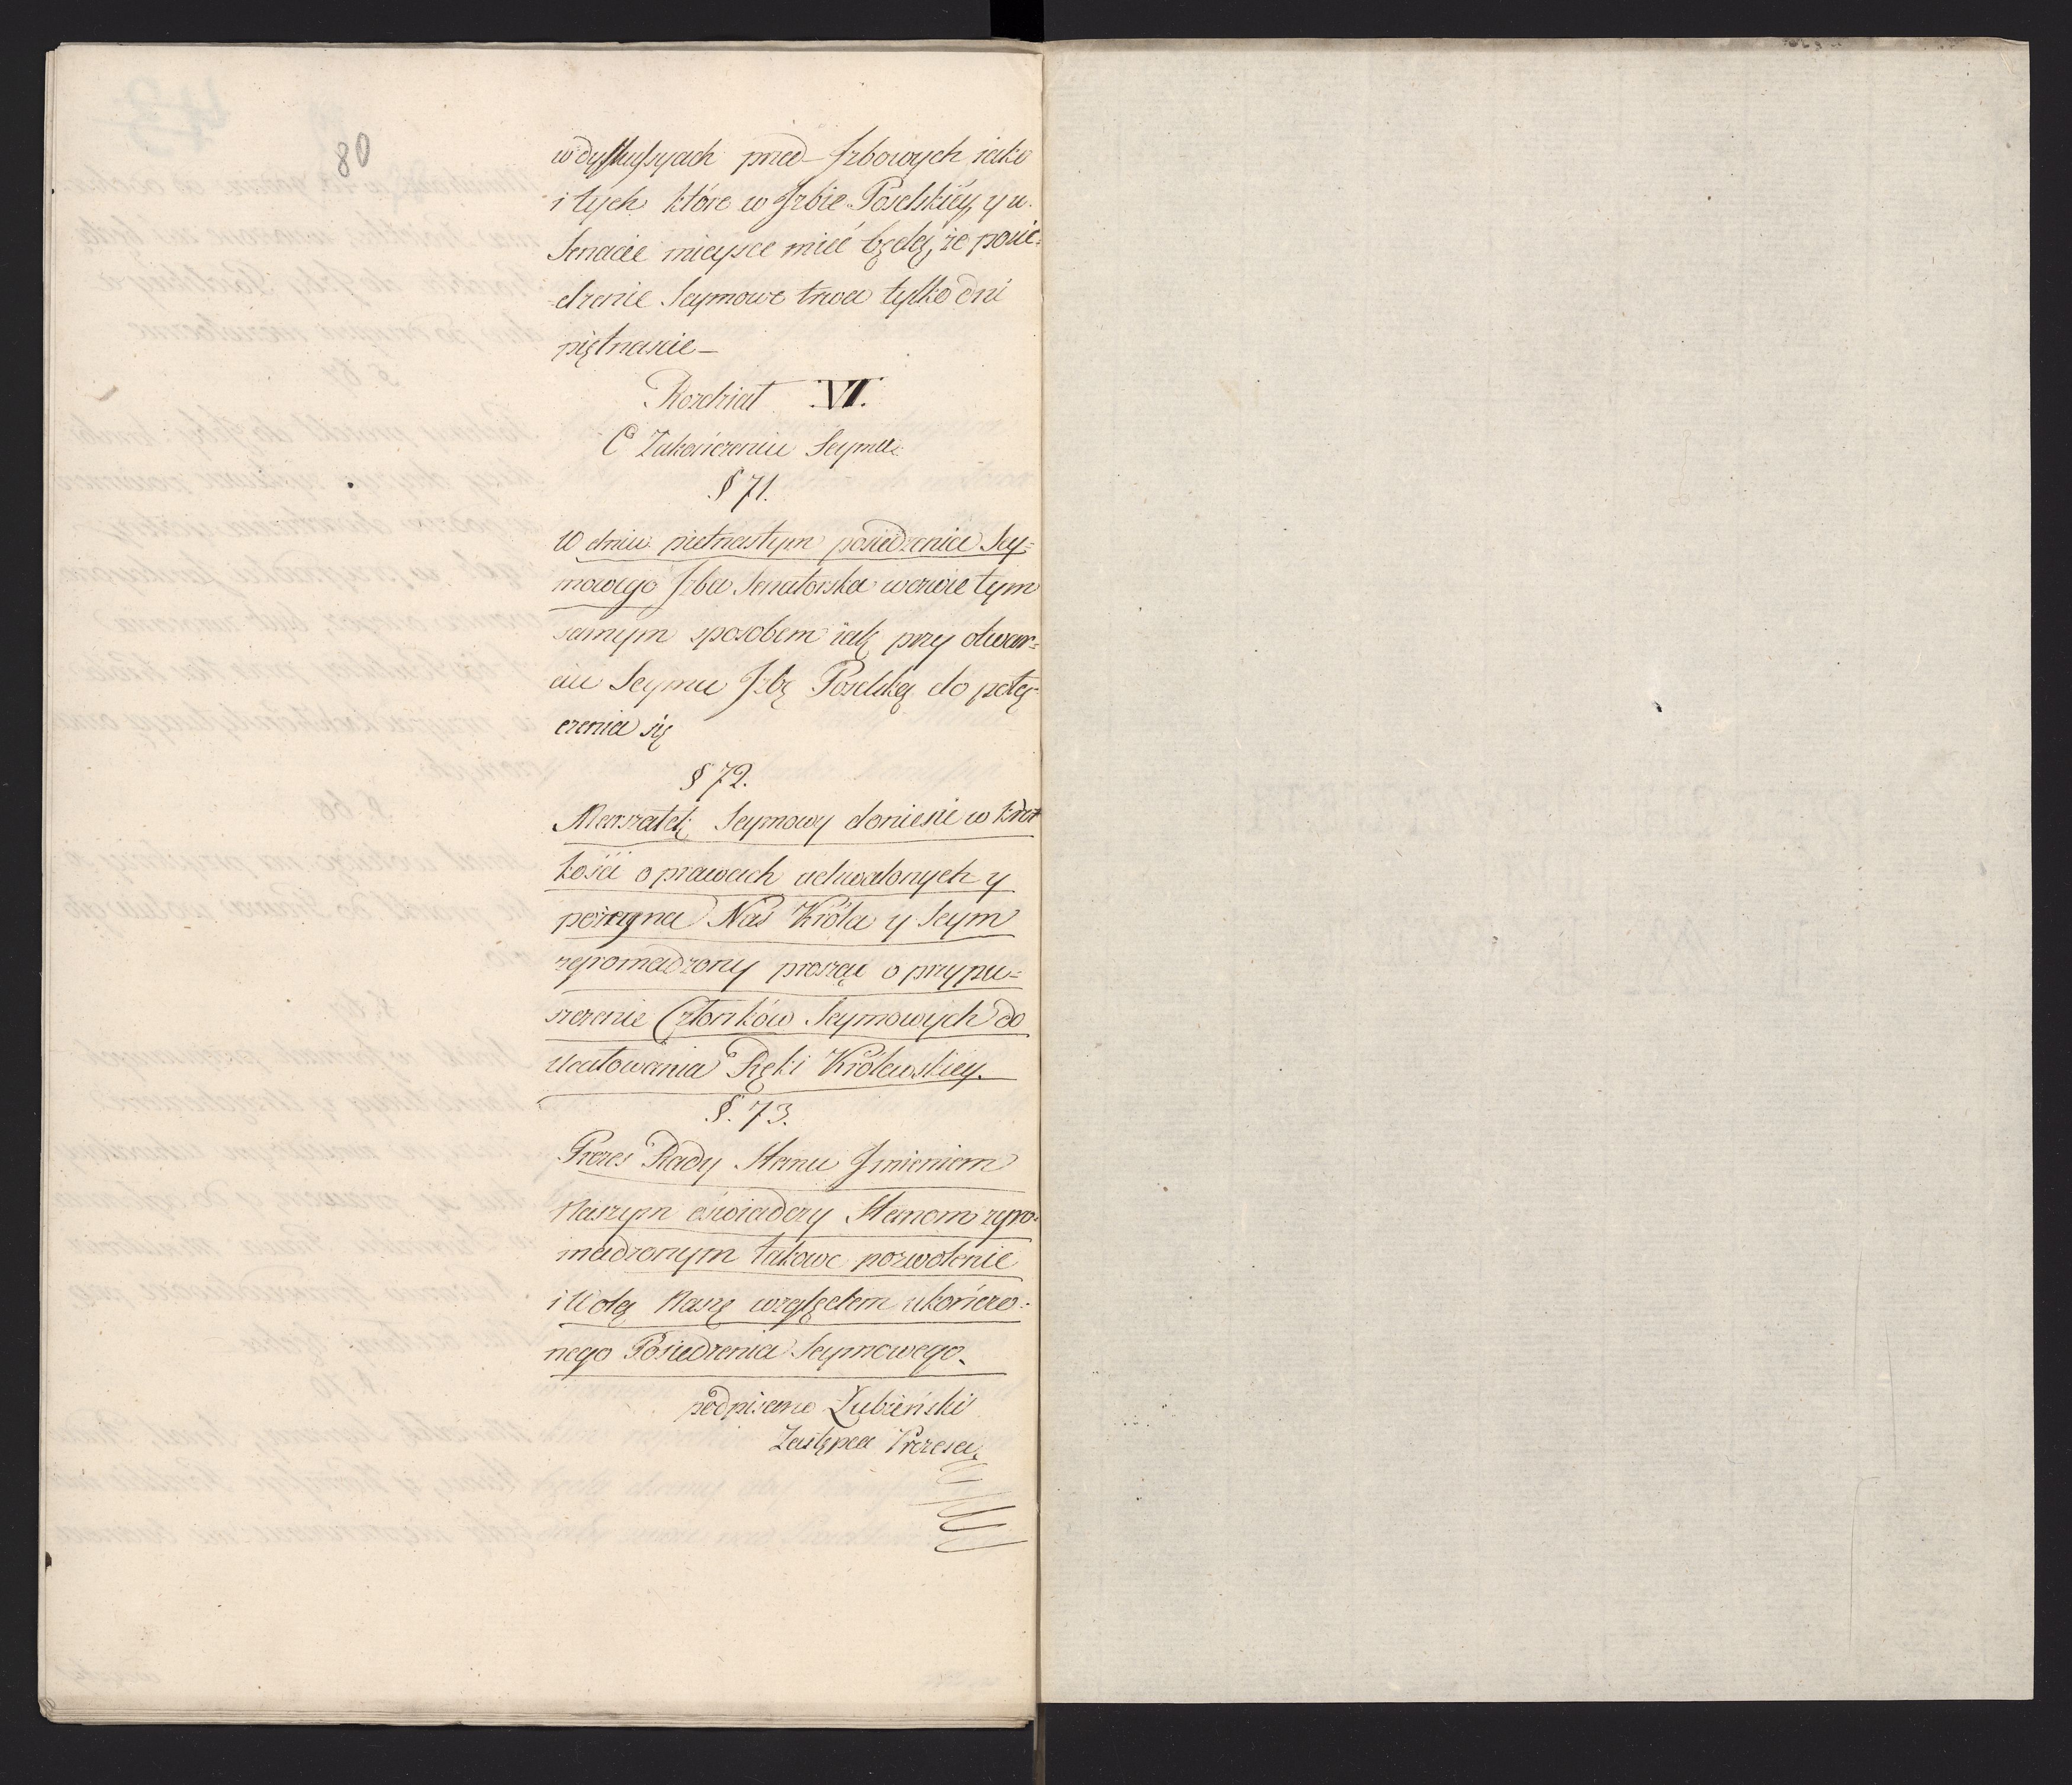 80
w dyskusyach przed-Izbowych iako
i tych które w Izbie Poselskiey y w
Senacie mieysce mieć będą, że posie-
dzenie Seymowe trwa tylko dni
piętnaście —
Rozdział VI.
O Zakończeniu Seymu.
§ 71.
W dniu piętnastym posiedzenia Sey=
mowego Izba Senatorska wezwie tym
samym sposobem iak przy otwar=
ciu Seymu Izbę Poselską do połą-
czenia się
§ 72.
Marszałek Seymowy doniesie w krót
kości o prawach uchwalonych y
pożegna Nas Króla y Seym
zgromadzony prosząc o przypu=
szczenie Członków Seymowych do
ucałowania Ręki Królewskiey.
§. 73.
Prezes Rady Stanu Imieniem
Naszym oświadczy Stanom zgro-
madzonym takowe pozwolenie
i Wolą Naszę względem ukończo-
nego Posiedzenia Seymowego.
podpisano Łubieński
Zastępca Prezesa